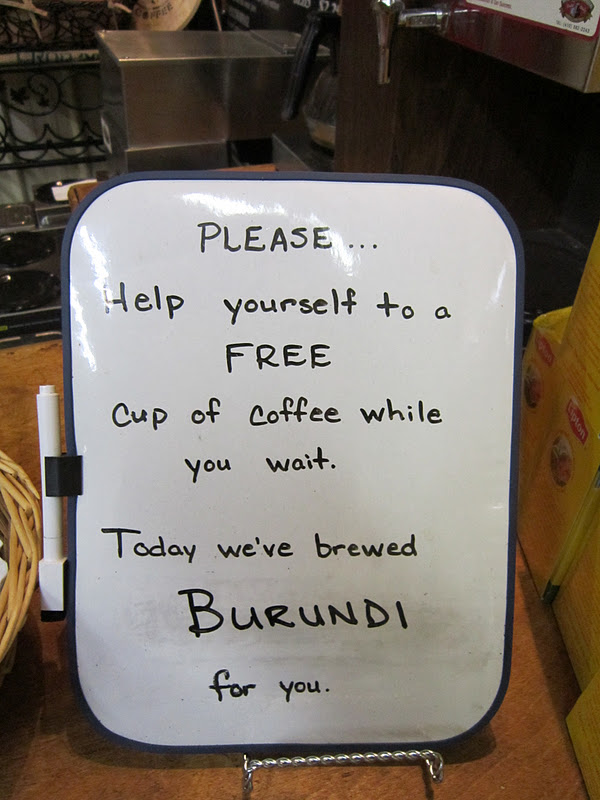 COFFEE
PLEASE...
Help yourself to a
FREE
cup of coffee while
you wait.
Today we've brewed
BURUNDI
for you.
Lipton
Lipton